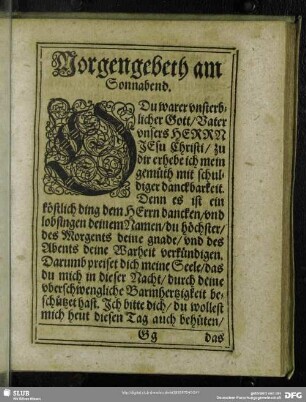 Morgengebeth am
Sonnabend.
O Du warer vnsterb-
licher Gott/ Vater
vnsers HERRN
JEsu Christi/ zu
dir erhebe ich mein
gemüth mit schul-
diger danckbarkeit.
Denn es ist ein
köstlich ding dem HErrn dancken/ vnd
lobsingen deinem Namen/ du höchster/
des Morgents deine gnade/ vnd des
Abents deine Warheit verkündigen.
Darumb preiset dich meine Seele/ das
du mich in dieser Nacht/ durch deine
vberschwengliche Barmhertzigkeit be-
schützet hast. Ich bitte dich/ du wollest
mich heut diesen Tag auch behüten/
Gg das
SLUB
DFG